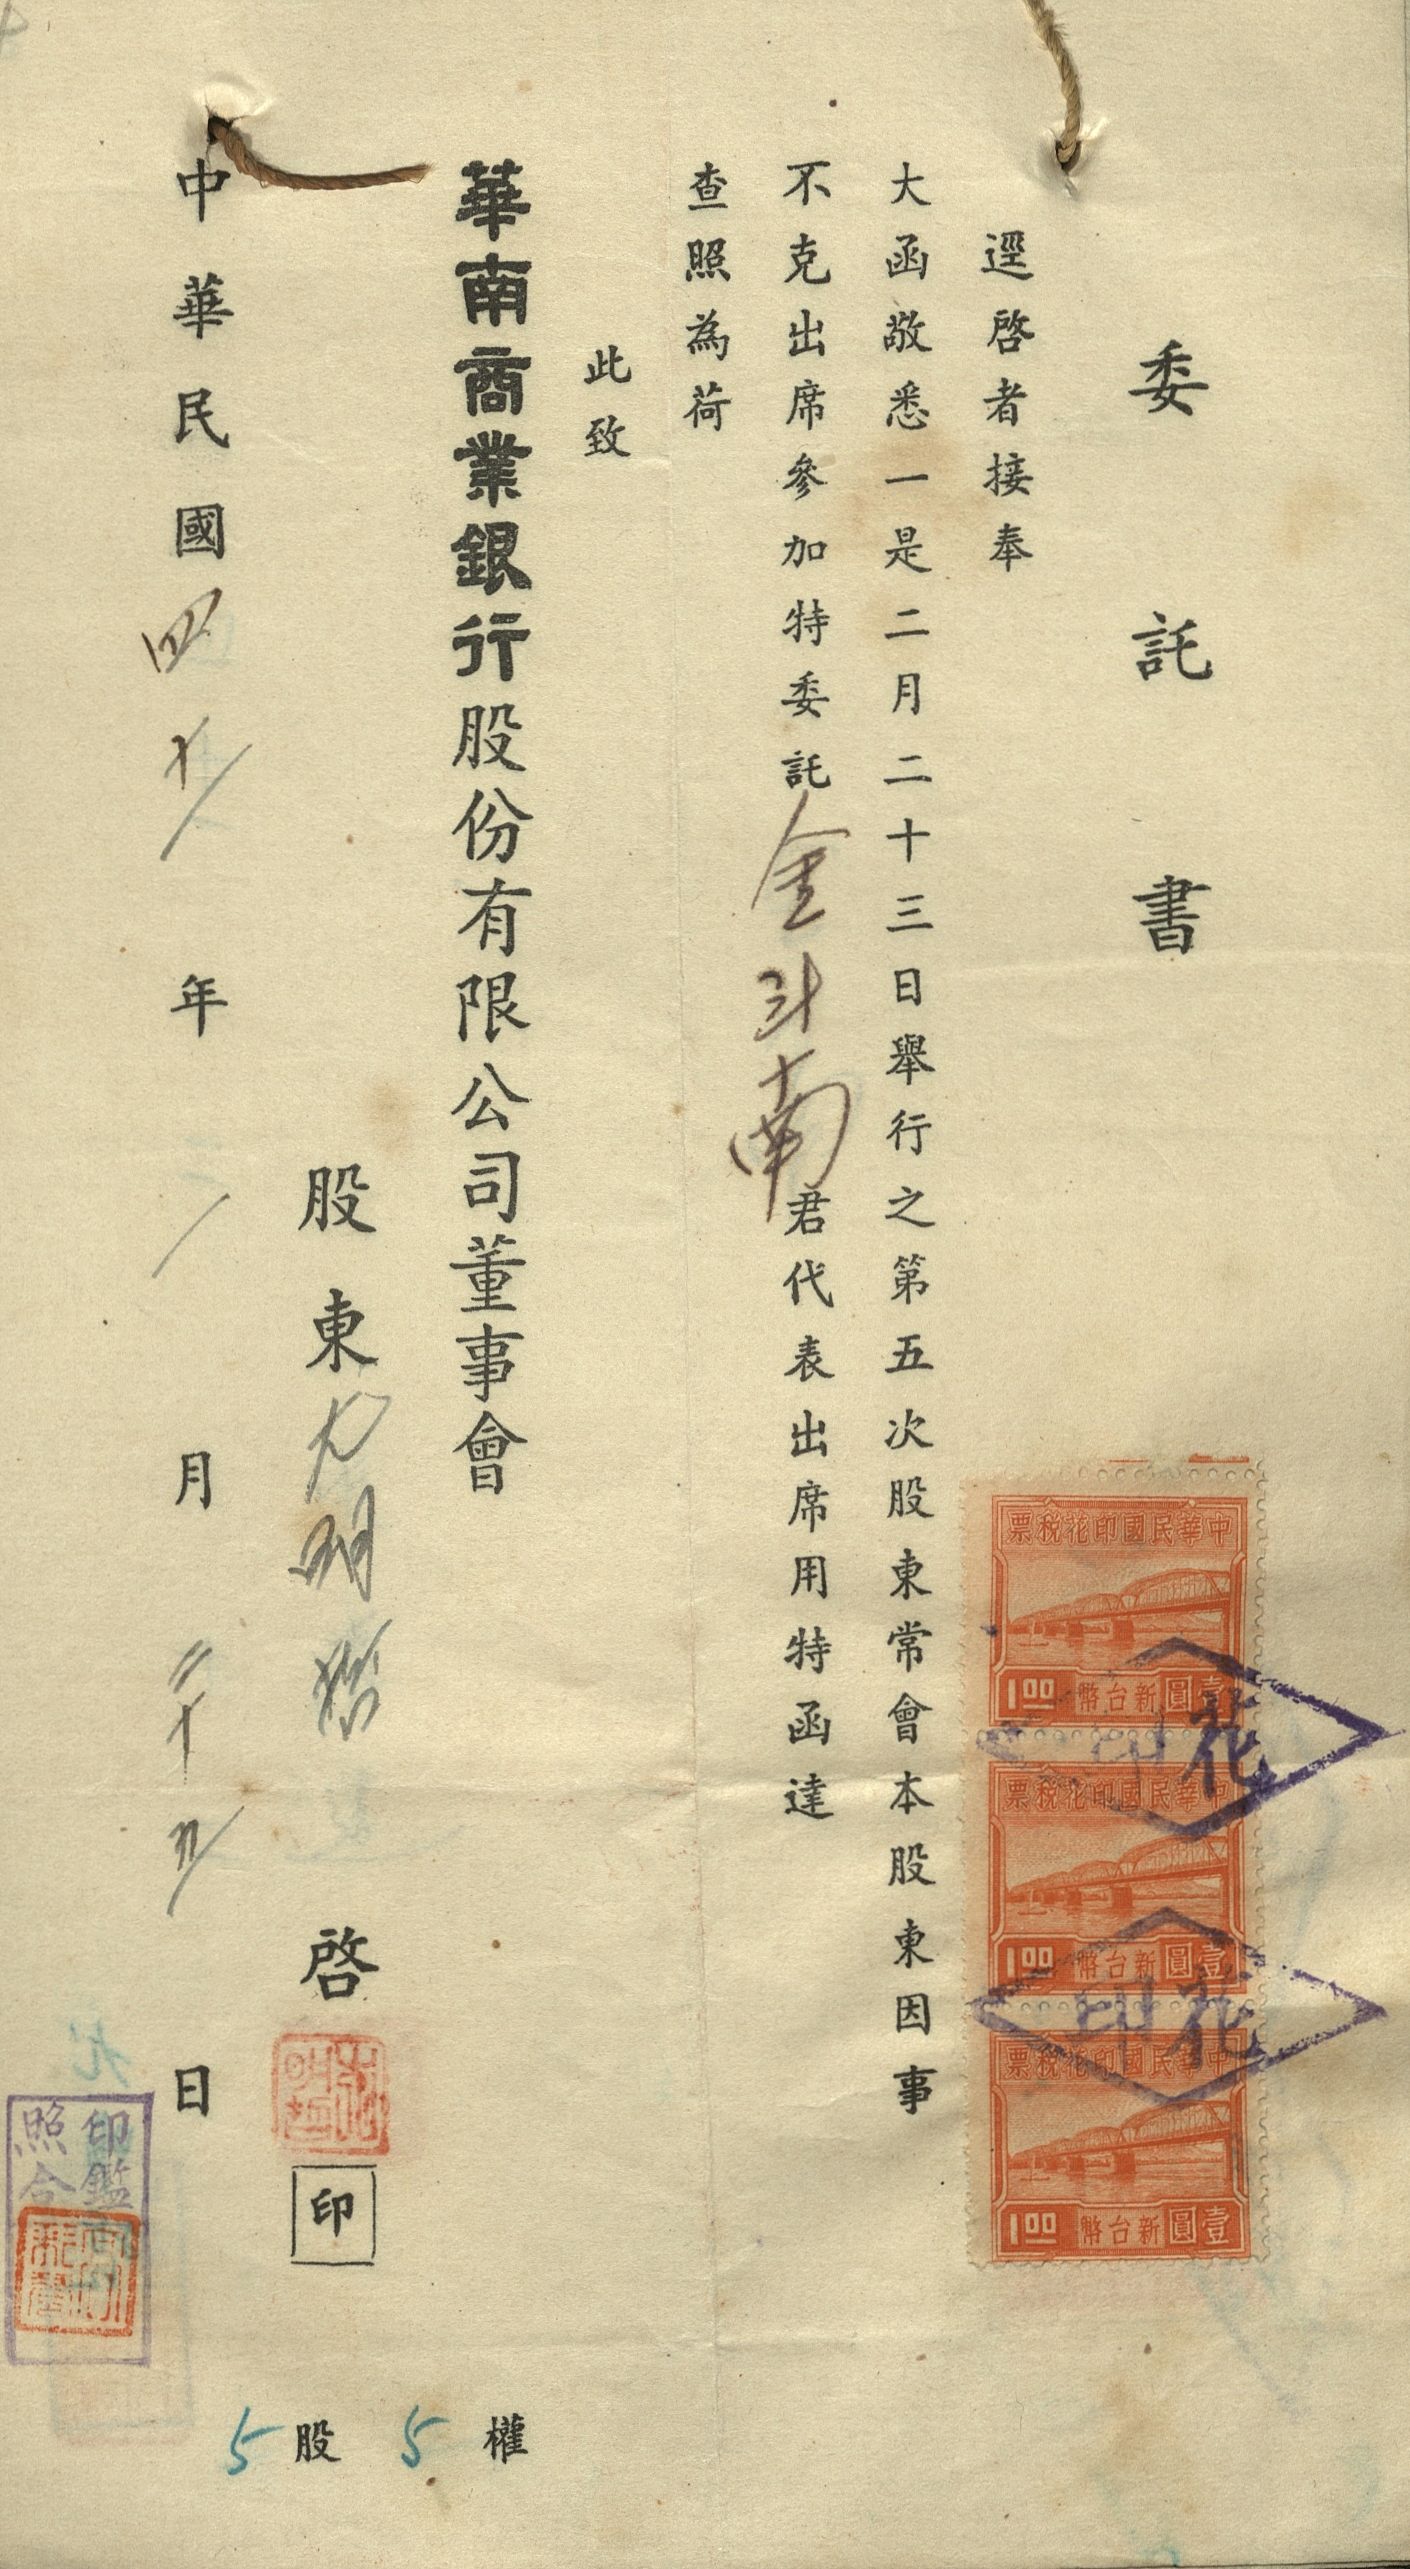 委託書
逕啓者接奉
大函敬悉一是二月二十三日舉行之第五次股東常會本股東因事
不克出席參加特委託金斗南君代表出席用特函達
查照為荷
此致
華南商業銀行股份有限公司董事會
股東尤明哲啓
尤明哲
印
中華民國四十一年一月二十九日
5股
5權
中華民國印花稅票
1.00 新台幣壹圓
中華民國印花稅票
1.00 新台幣壹圓
中華民國印花稅票
1.00 新台幣壹圓
花印
花印
印鑑
照合